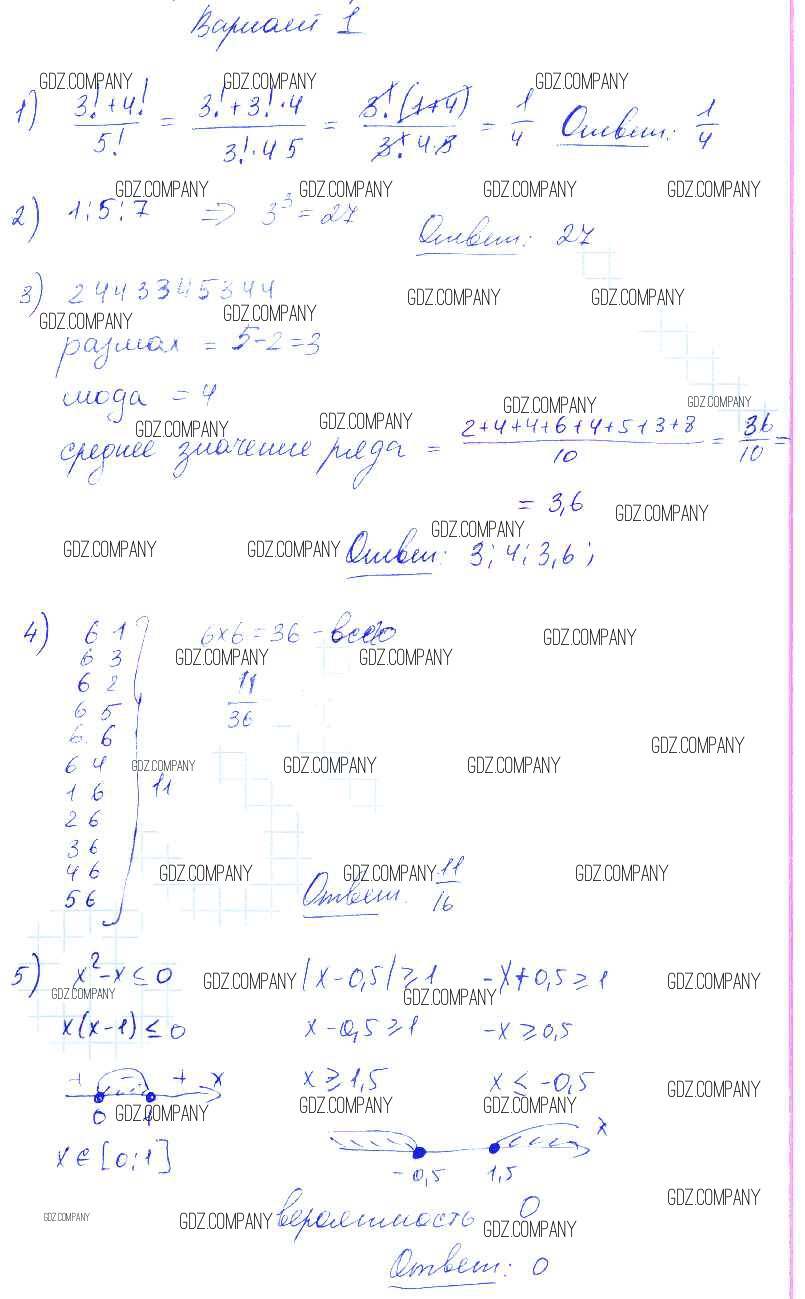 Вариант 1
GDZ.COMPANY GDZ.COMPANY GDZ.COMPANY
1) (3!+4!)/5! = (3!+3!·4)/(3!·4 5) = (3!(1+4))/(3!·4·5) = 1/4 Ответ: 1/4
GDZ.COMPANY GDZ.COMPANY GDZ.COMPANY GDZ.COMPANY
2) 1;5;7 => 3³=27 Ответ: 27
3) 2 4 4 3 3 4 5 3 4 4 GDZ.COMPANY GDZ.COMPANY
GDZ.COMPANY GDZ.COMPANY
размах = 5-2=3
мода = 4 GDZ.COMPANY GDZ.COMPANY
GDZ.COMPANY GDZ.COMPANY
среднее значение ряда = (2+4+4+6+4+5+3+8)/10 = 36/10 =
= 3,6 GDZ.COMPANY
GDZ.COMPANY
GDZ.COMPANY GDZ.COMPANY Ответ: 3; 4; 3,6;
4) 6 1 6×6=36 - всего GDZ.COMPANY
6 3 GDZ.COMPANY GDZ.COMPANY
6 2 11/36
6 5
6 6 GDZ.COMPANY
6 4 GDZ.COMPANY GDZ.COMPANY GDZ.COMPANY
1 6 11
2 6
3 6
4 6 GDZ.COMPANY GDZ.COMPANY GDZ.COMPANY
5 6 Ответ: 11/16
5) x²-x≤0 GDZ.COMPANY |x-0,5|≥1 -x+0,5≥1 GDZ.COMPANY
GDZ.COMPANY GDZ.COMPANY
x(x-1)≤0 x-0,5≥1 -x≥0,5
+ - + x x≥1,5 x≤-0,5 GDZ.COMPANY
0 1 GDZ.COMPANY GDZ.COMPANY GDZ.COMPANY
x
x∈[0;1] -0,5 1,5
GDZ.COMPANY
GDZ.COMPANY GDZ.COMPANY вероятность 0 GDZ.COMPANY
Ответ: 0